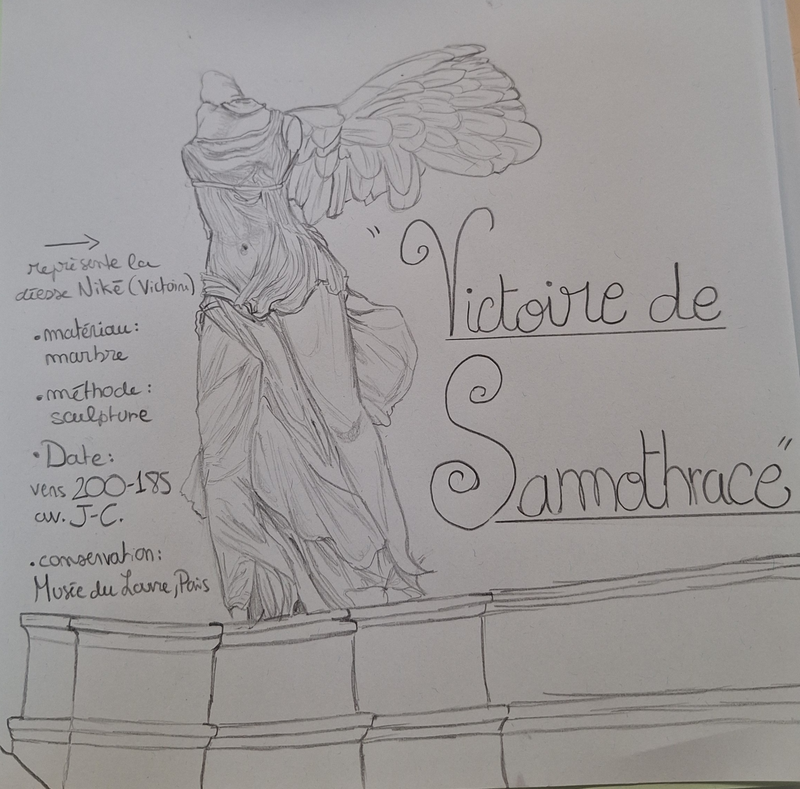 "Victoire de
Samothrace"
→
représente la
déesse Nikē (Victoire)
• matériau:
marbre
• méthode:
sculpture
• Date:
vers 200-185
av. J-C.
• conservation:
Musée du Louvre, Paris